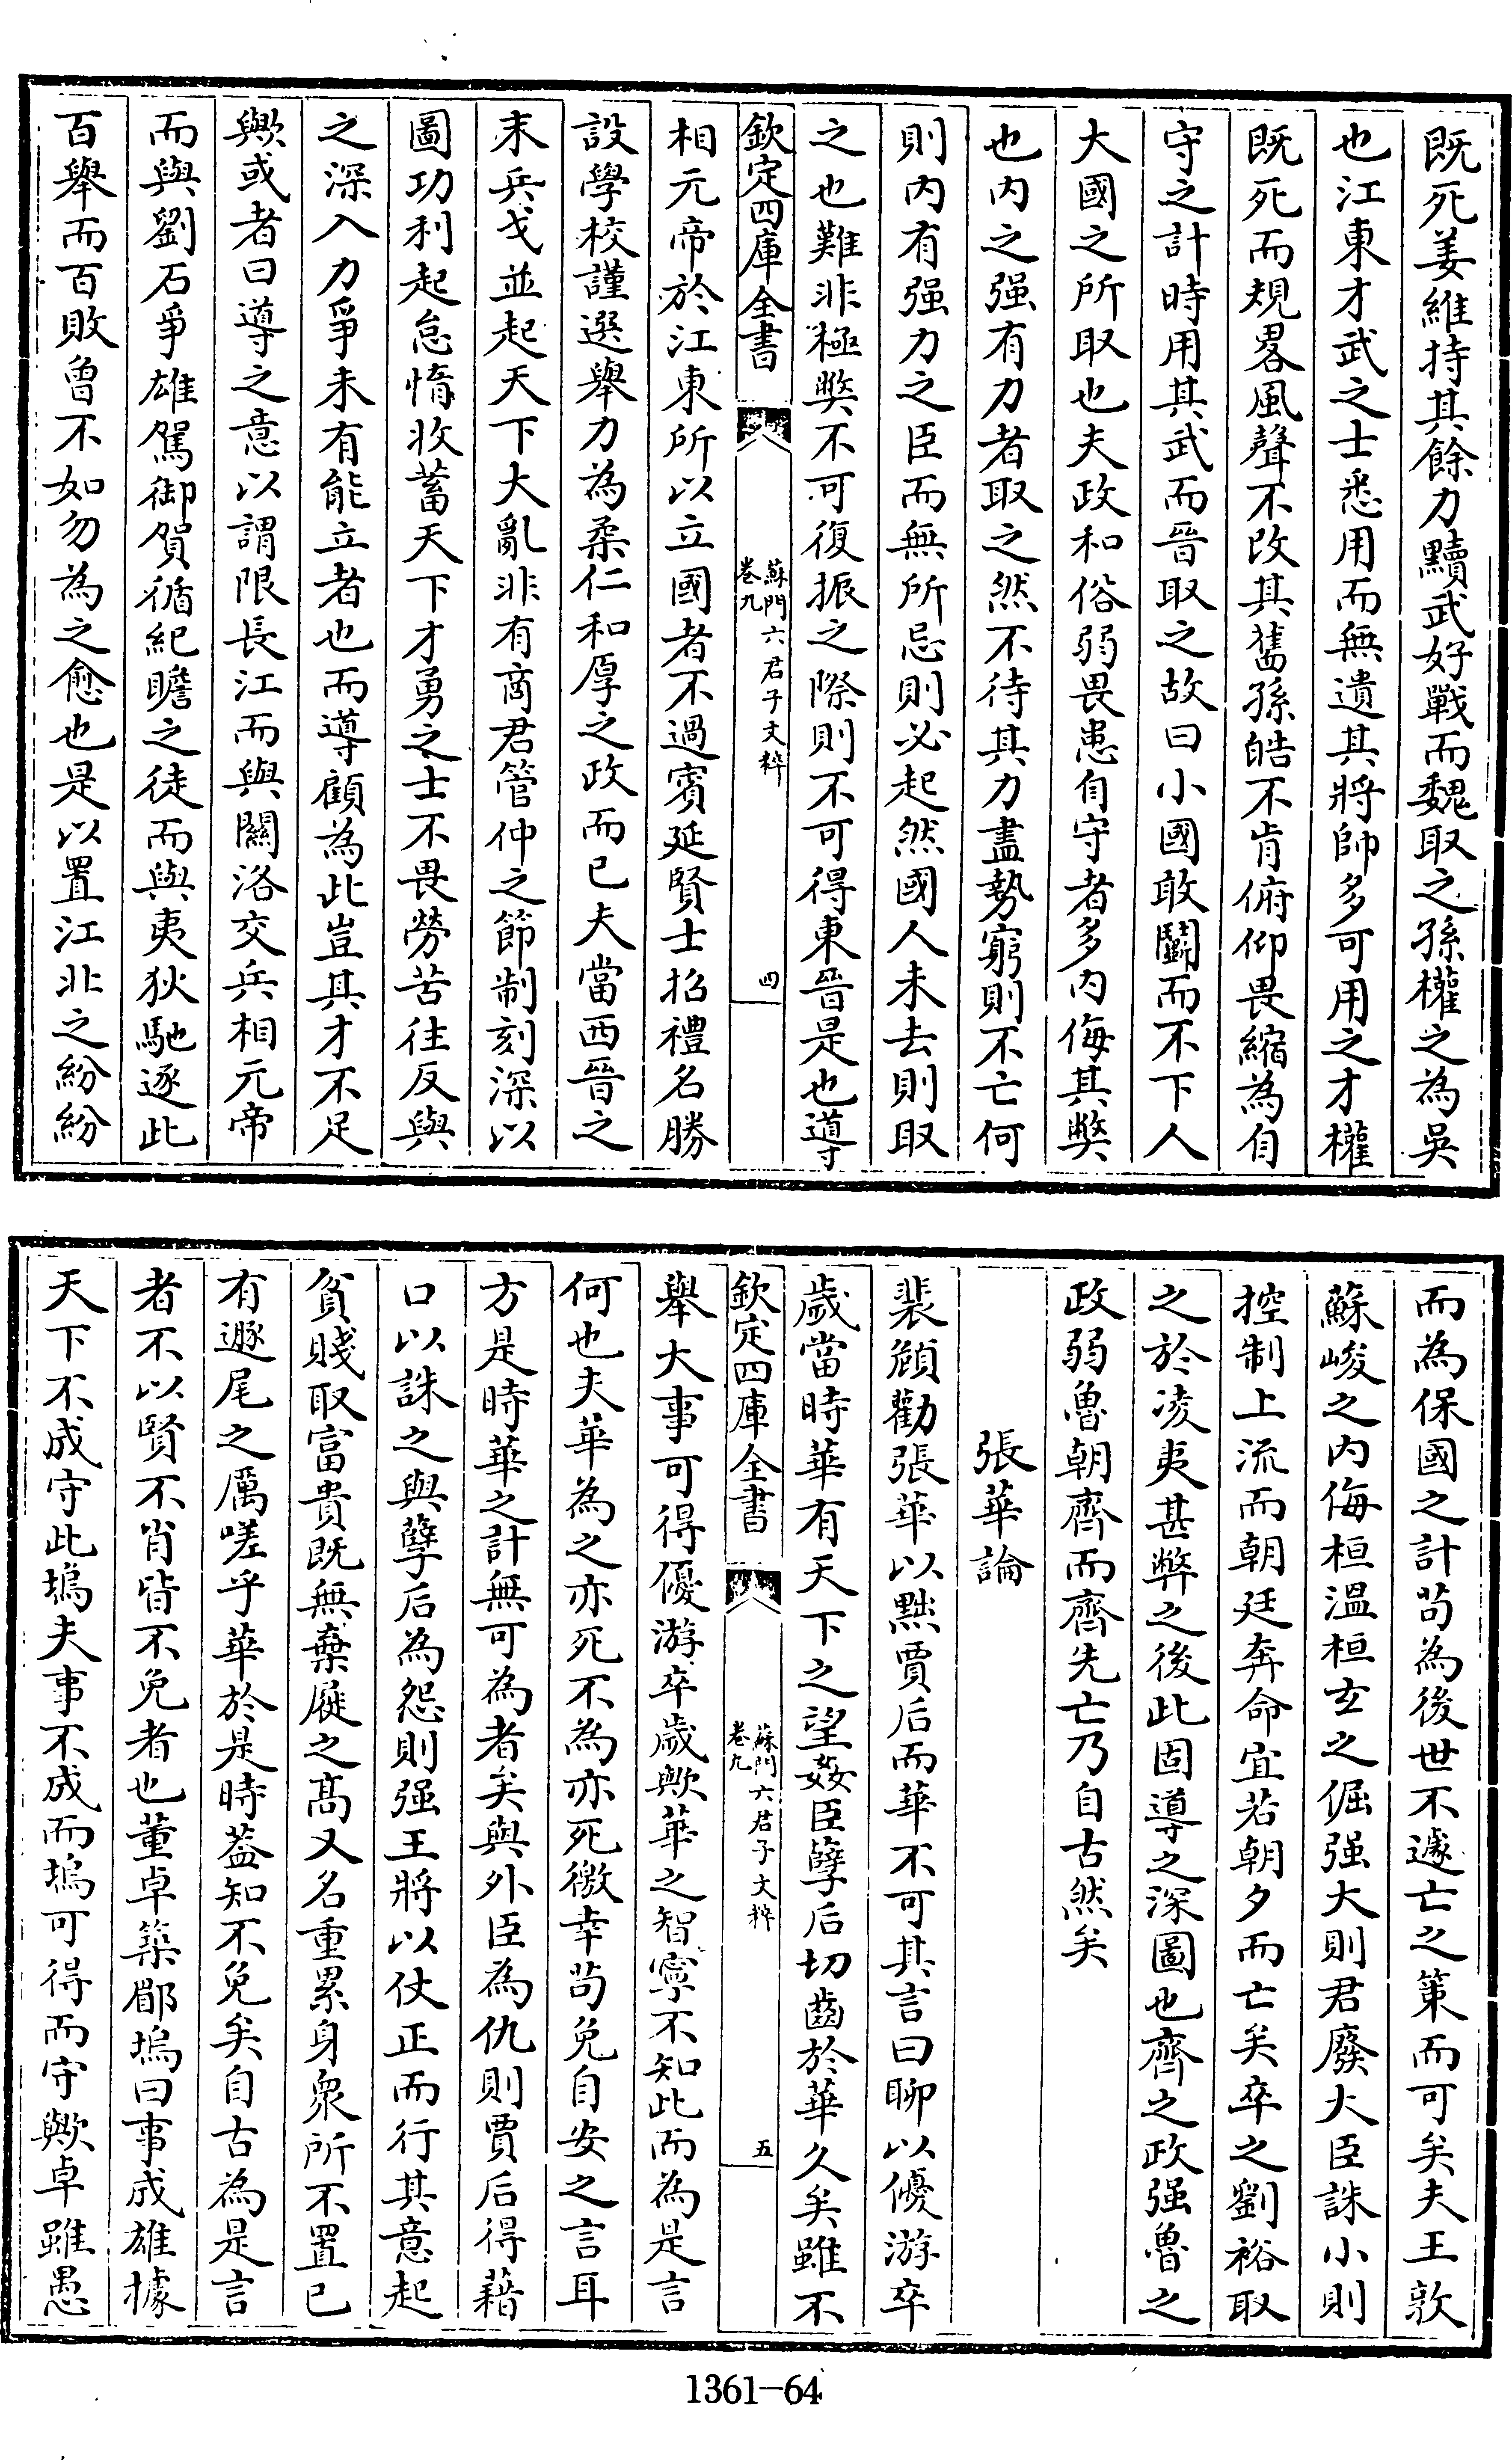 既死姜維持其餘力黷武好戰而魏取之孫權之為吳
也江東才武之士悉用而無遺其將帥多可用之才權
既死而規畧風聲不改其舊孫皓不肯俯仰畏縮為自
守之計時用其武而晉取之故曰小國敢鬭而不下人
大國之所取也夫政和俗弱畏患自守者多内侮其獘
也内之强有力者取之然不待其力盡勢窮則不亡何
則内有强力之臣而無所忌則必起然國人未去則取
之也難非極獘不可復振之際則不可得東晉是也導
欽定四庫全書
蘇門六君子文粹
卷九
四
相元帝於江東所以立國者不過賓延賢士招禮名勝
設學校謹選舉力為柔仁和厚之政而已夫當西晉之
末兵戈並起天下大亂非有商君管仲之節制刻深以
圖功利起怠惰收蓄天下才勇之士不畏勞苦往反與
之深入力爭未有能立者也而導顧為此豈其才不足
歟或者曰導之意以謂限長江而與關洛交兵相元帝
而與劉石爭雄駕御賀循紀瞻之徒而與夷狄馳逐此
百舉而百敗曾不如勿為之愈也是以置江北之紛紛
而為保國之計茍為後世不遽亡之策而可矣夫王敦
蘇峻之内侮桓溫桓玄之倔强大則君廢大臣誅小則
控制上流而朝廷奔命宜若朝夕而亡矣卒之劉裕取
之於凌夷甚弊之後此固導之深圖也齊之政强魯之
政弱魯朝齊而齊先亡乃自古然矣
張華論
裴頠勸張華以黜賈后而華不可其言曰聊以優游卒
歲當時華有天下之望姦臣孽后切齒於華久矣雖不
欽定四庫全書
蘇門六君子文粹
卷九
五
舉大事可得優游卒歲歟華之智寧不知此而為是言
何也夫華為之亦死不為亦死徼幸茍免自安之言耳
方是時華之計無可為者矣與外臣為仇則賈后得藉
口以誅之與孽后為怨則强王將以仗正而行其意起
貧賤取富貴既無棄屣之髙又名重累身衆所不置已
有遯尾之厲嗟乎華於是時葢知不免矣自古為是言
者不以賢不肖皆不免者也董卓築郿塢曰事成雄據
天下不成守此塢夫事不成而塢可得而守歟卓雖愚
1361-64